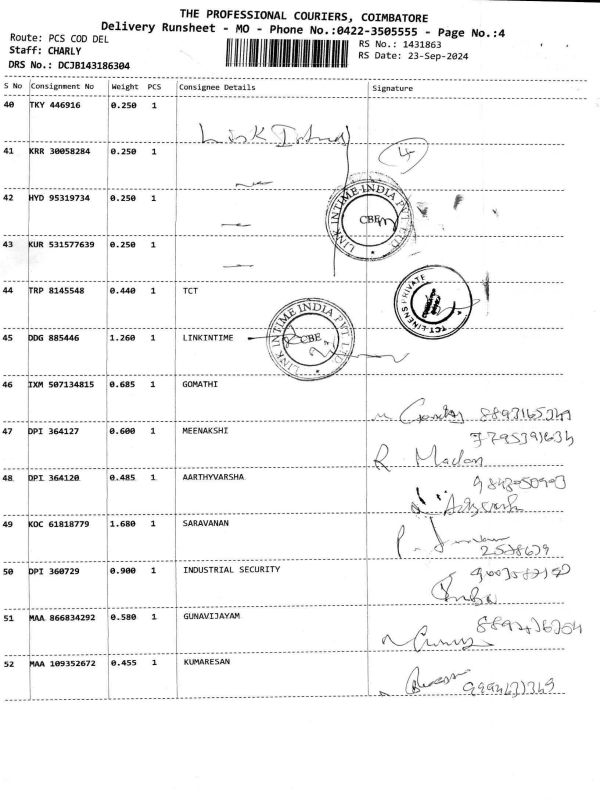 THE PROFESSIONAL COURIERS, COIMBATORE
Delivery Runsheet - MO - Phone No.:0422-3505555 - Page No.:4
Route: PCS COD DEL RS No.: 1431863
Staff: CHARLY RS Date: 23-Sep-2024
DRS No.: DCJB143186304
S No Consignment No Weight PCS Consignee Details Signature
40 TKY 446916 0.250 1
41 KRR 30058284 0.250 1
4
42 HYD 95319734 0.250 1
LINK INTIME INDIA PVT LTD
CBE
43 KUR 531577639 0.250 1
44 TRP 8145548 0.440 1 TCT
TCT LINENS PRIVATE
45 DDG 885446 1.260 1 LINKINTIME
LINK INTIME INDIA PVT LTD
CBE
46 IXM 507134815 0.685 1 GOMATHI
47 DPI 364127 0.600 1 MEENAKSHI
R. Madan
48 DPI 364120 0.485 1 AARTHYVARSHA
49 KOC 61818779 1.680 1 SARAVANAN
50 DPI 360729 0.900 1 INDUSTRIAL SECURITY
51 MAA 866834292 0.580 1 GUNAVIJAYAM
52 MAA 109352672 0.455 1 KUMARESAN